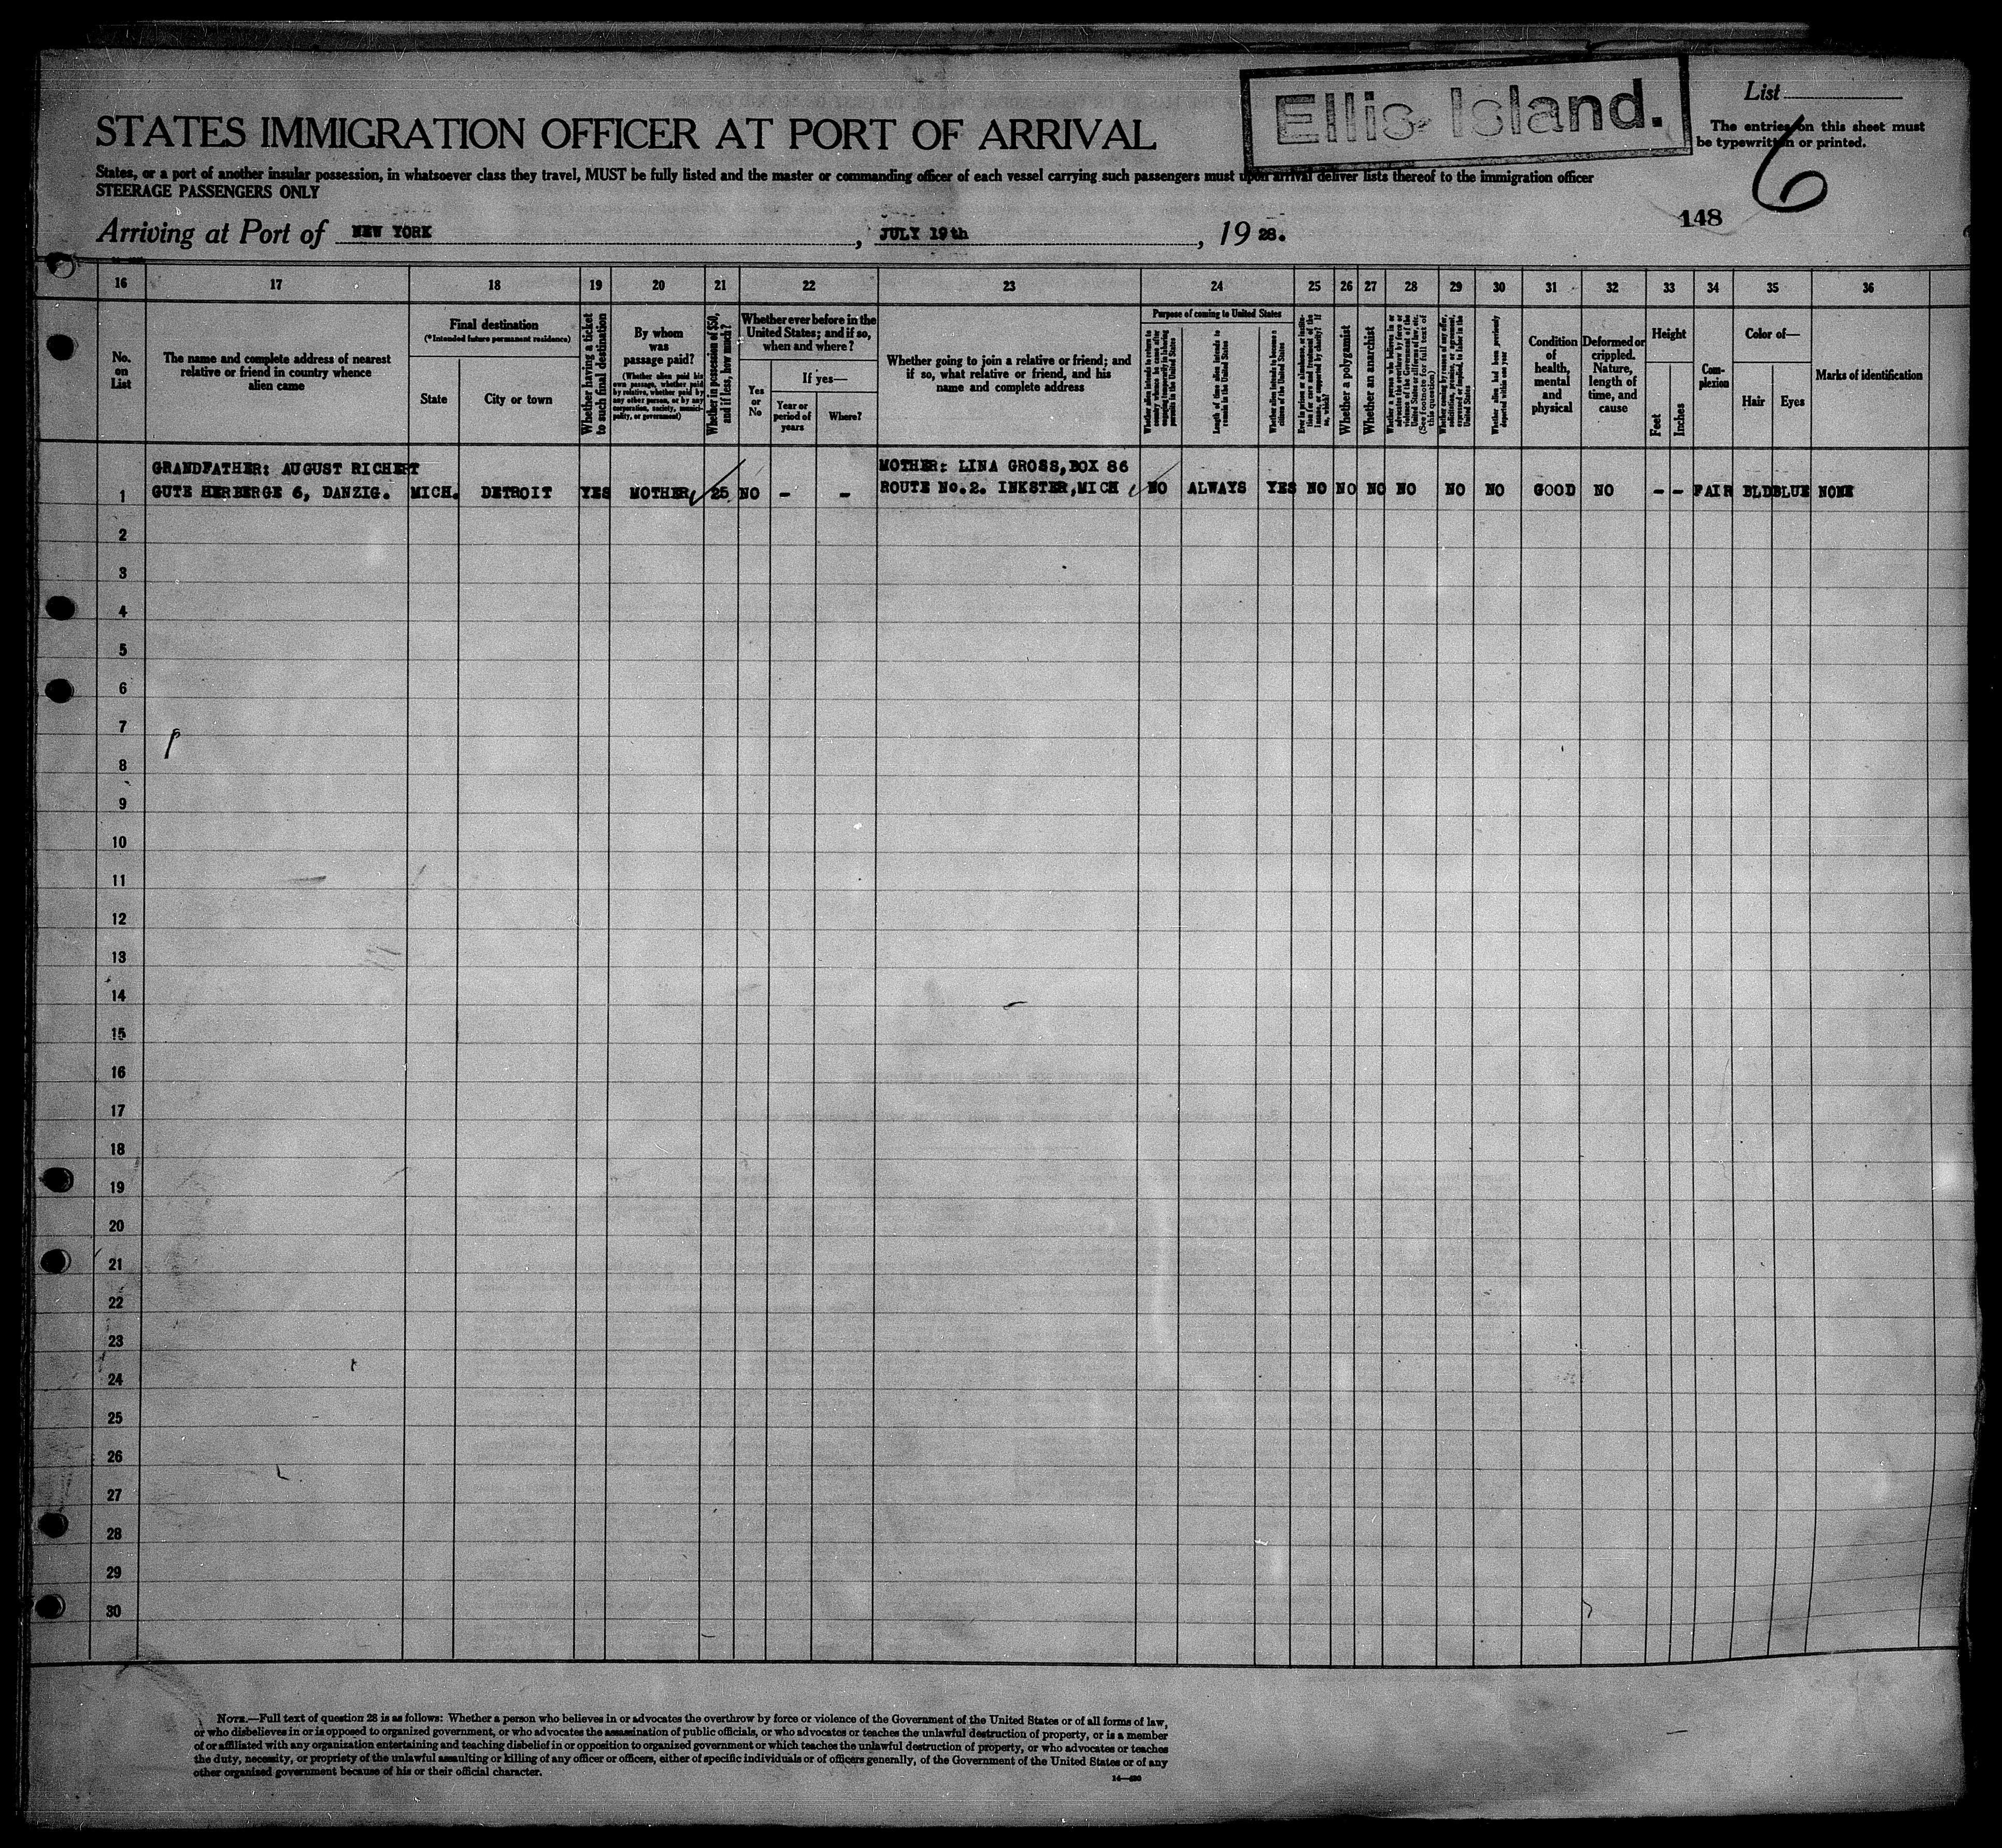 Ellis Island.
List
6
The entries on this sheet must
be typewritten or printed.
STATES IMMIGRATION OFFICER AT PORT OF ARRIVAL
States, or a port of another insular possession, in whatsoever class they travel, MUST be fully listed and the master or commanding officer of each vessel carrying such passengers must upon arrival deliver lists thereof to the immigration officer
STEERAGE PASSENGERS ONLY
148
Arriving at Port of NEW YORK, JULY 19th, 19 28.
16 17 18 19 20 21 22 23 24 25 26 27 28 29 30 31 32 33 34 35 36
No. on List
The name and complete address of nearest
relative or friend in country whence
alien came
Final destination
(*Intended future permanent residence)
State
City or town
Whether having a ticket
to such final destination
By whom
was
passage paid?
(Whether alien paid his
own passage, whether paid
by relative, whether paid by
any other person, or by any
corporation, society, munici-
pality, or government)
Whether in possession of $50,
and if less, how much?
Whether ever before in the
United States; and if so,
when and where?
Yes
or
No
If yes—
Year or
period of
years
Where?
Whether going to join a relative or friend; and
if so, what relative or friend, and his
name and complete address
Purpose of coming to United States
Length of time alien intends to
remain in the United States
Whether alien intends to become a
citizen of the United States
Whether a polygamist
Whether an anarchist
(See footnote for full text of
this question)
Whether alien had been previously
deported within one year
Condition
of
health,
mental
and
physical
Deformed or
crippled.
Nature,
length of
time, and
cause
Height
Feet
Inches
Com-
plexion
Color of—
Hair
Eyes
Marks of identification
GRANDFATHER: AUGUST RICHERT MOTHER: LINA GROSS, BOX 86
1 GUTE HERBERGE 6, DANZIG. MICH. DETROIT YES MOTHER 25 NO - - ROUTE No.2. INKSTER, MICH NO ALWAYS YES NO NO NO NO NO NO GOOD NO - - FAIR BLD BLUE NONE
2
3
4
5
6
7
8
9
10
11
12
13
14
15
16
17
18
19
20
21
22
23
24
25
26
27
28
29
30
NOTE.—Full text of question 28 is as follows: Whether a person who believes in or advocates the overthrow by force or violence of the Government of the United States or of all forms of law,
or who disbelieves in or is opposed to organized government, or who advocates the assassination of public officials, or who advocates or teaches the unlawful destruction of property, or is a member
of or affiliated with any organization entertaining and teaching disbelief in or opposition to organized government or which teaches the unlawful destruction of property, or who advocates or teaches
the duty, necessity, or propriety of the unlawful assaulting or killing of any officer or officers, either of specific individuals or of officers generally, of the Government of the United States or of any
other organized government because of his or their official character.